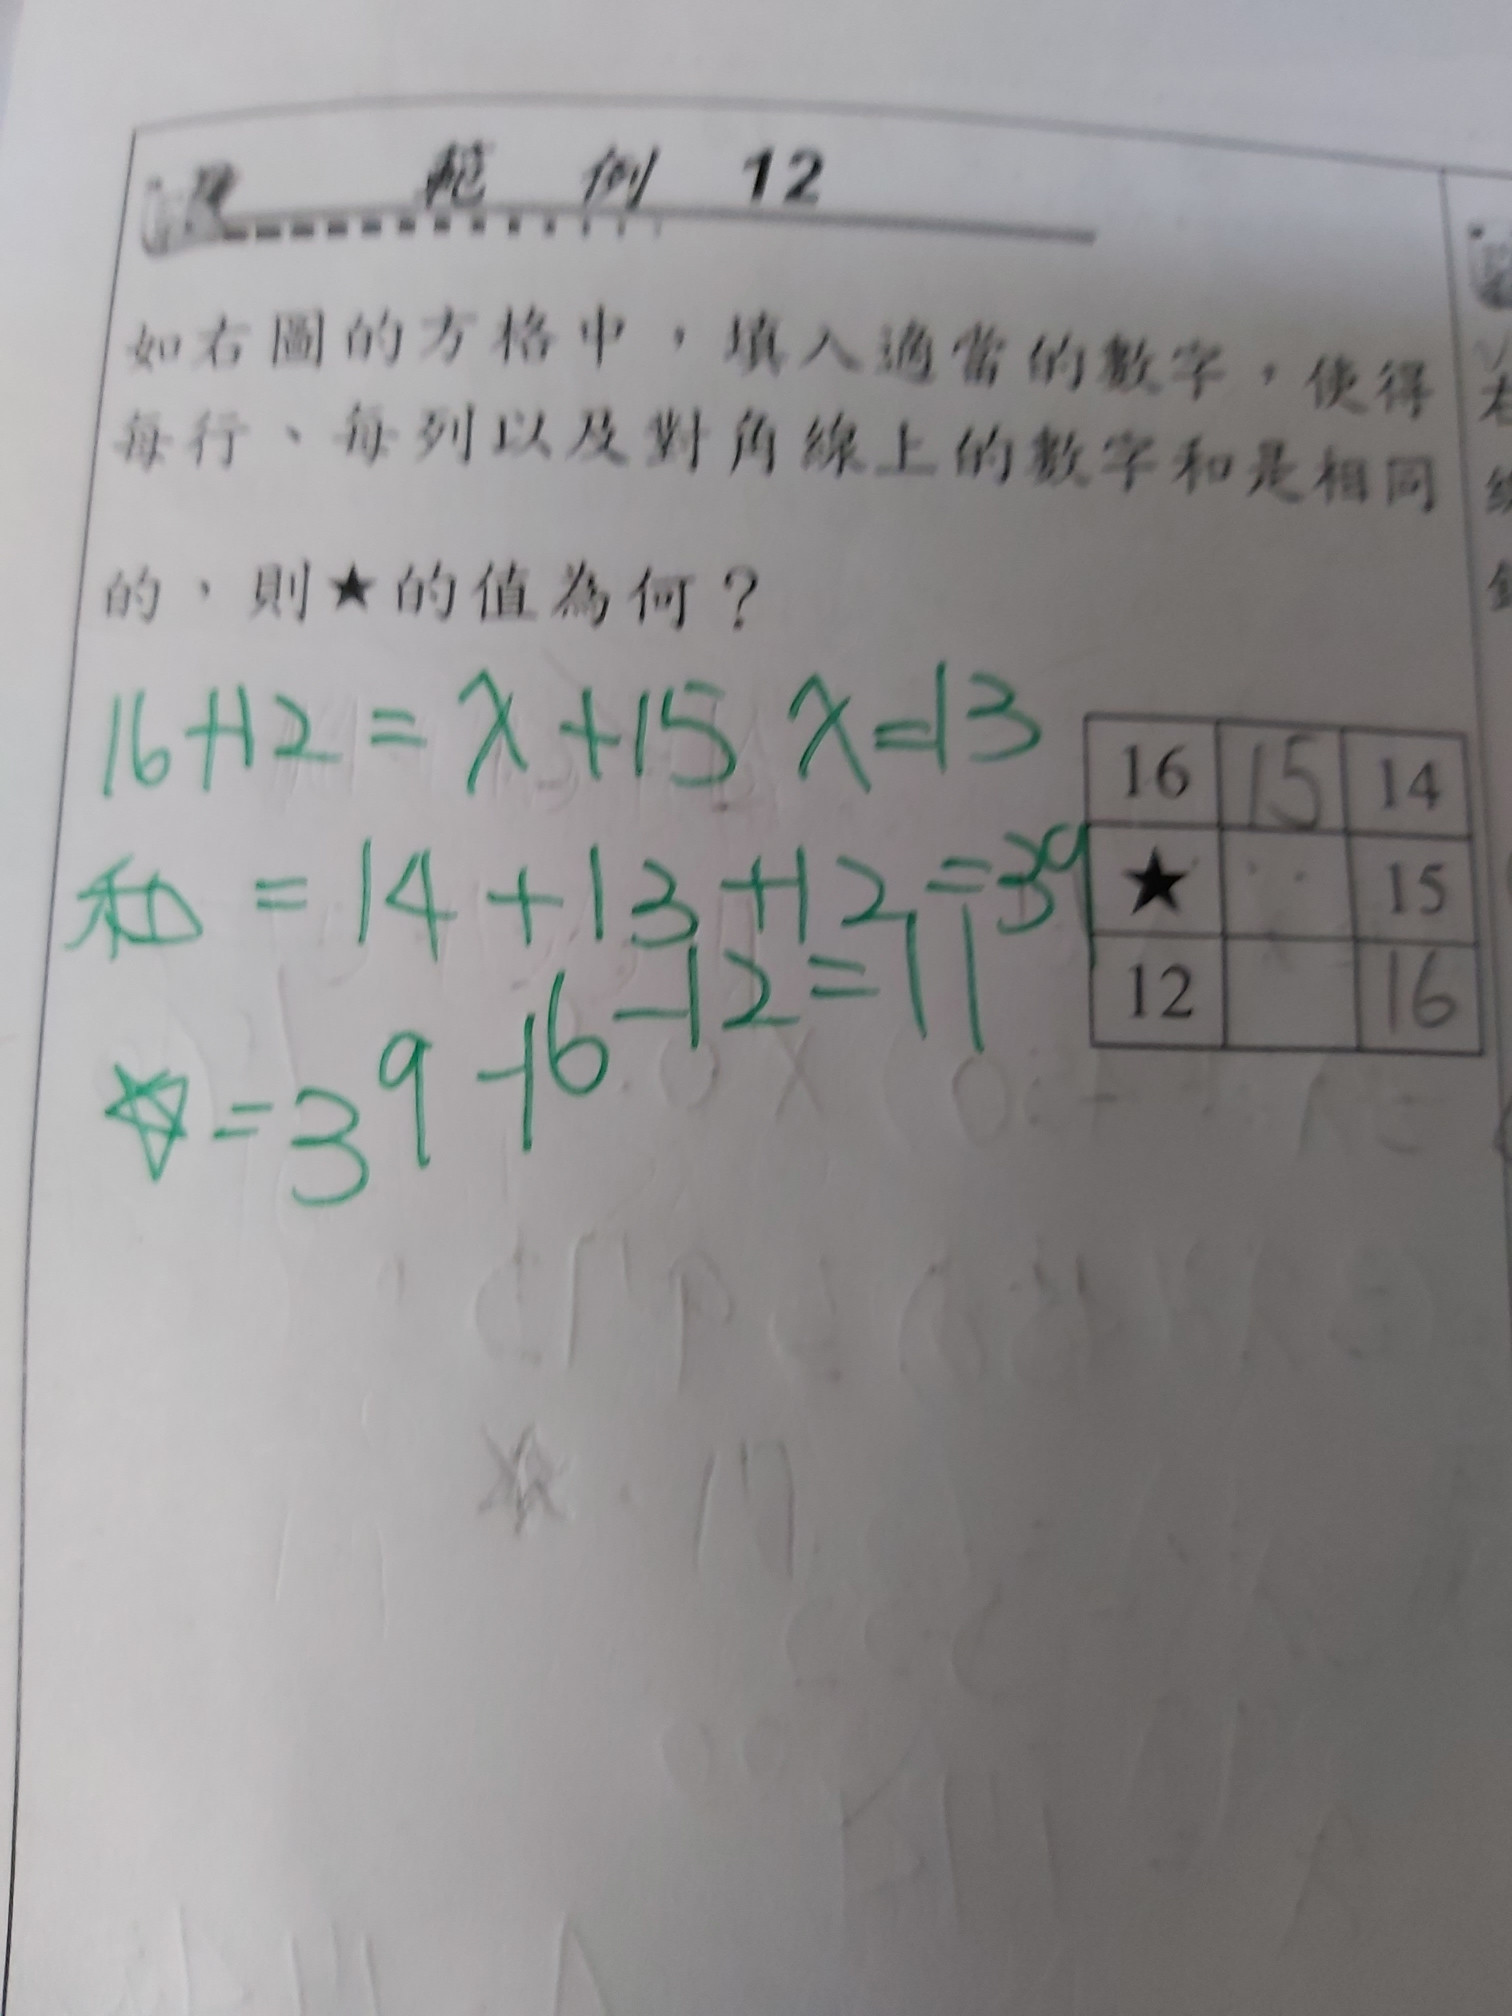 範 例 12
如右圖的方格中，填入適當的數字，使得
每行、每列以及對角線上的數字和是相同
的，則★的值為何？
16+12=x+15 x=13
和=14+13+12=39
☆=39-16-12=11
16 15 14
★ 15
12 16